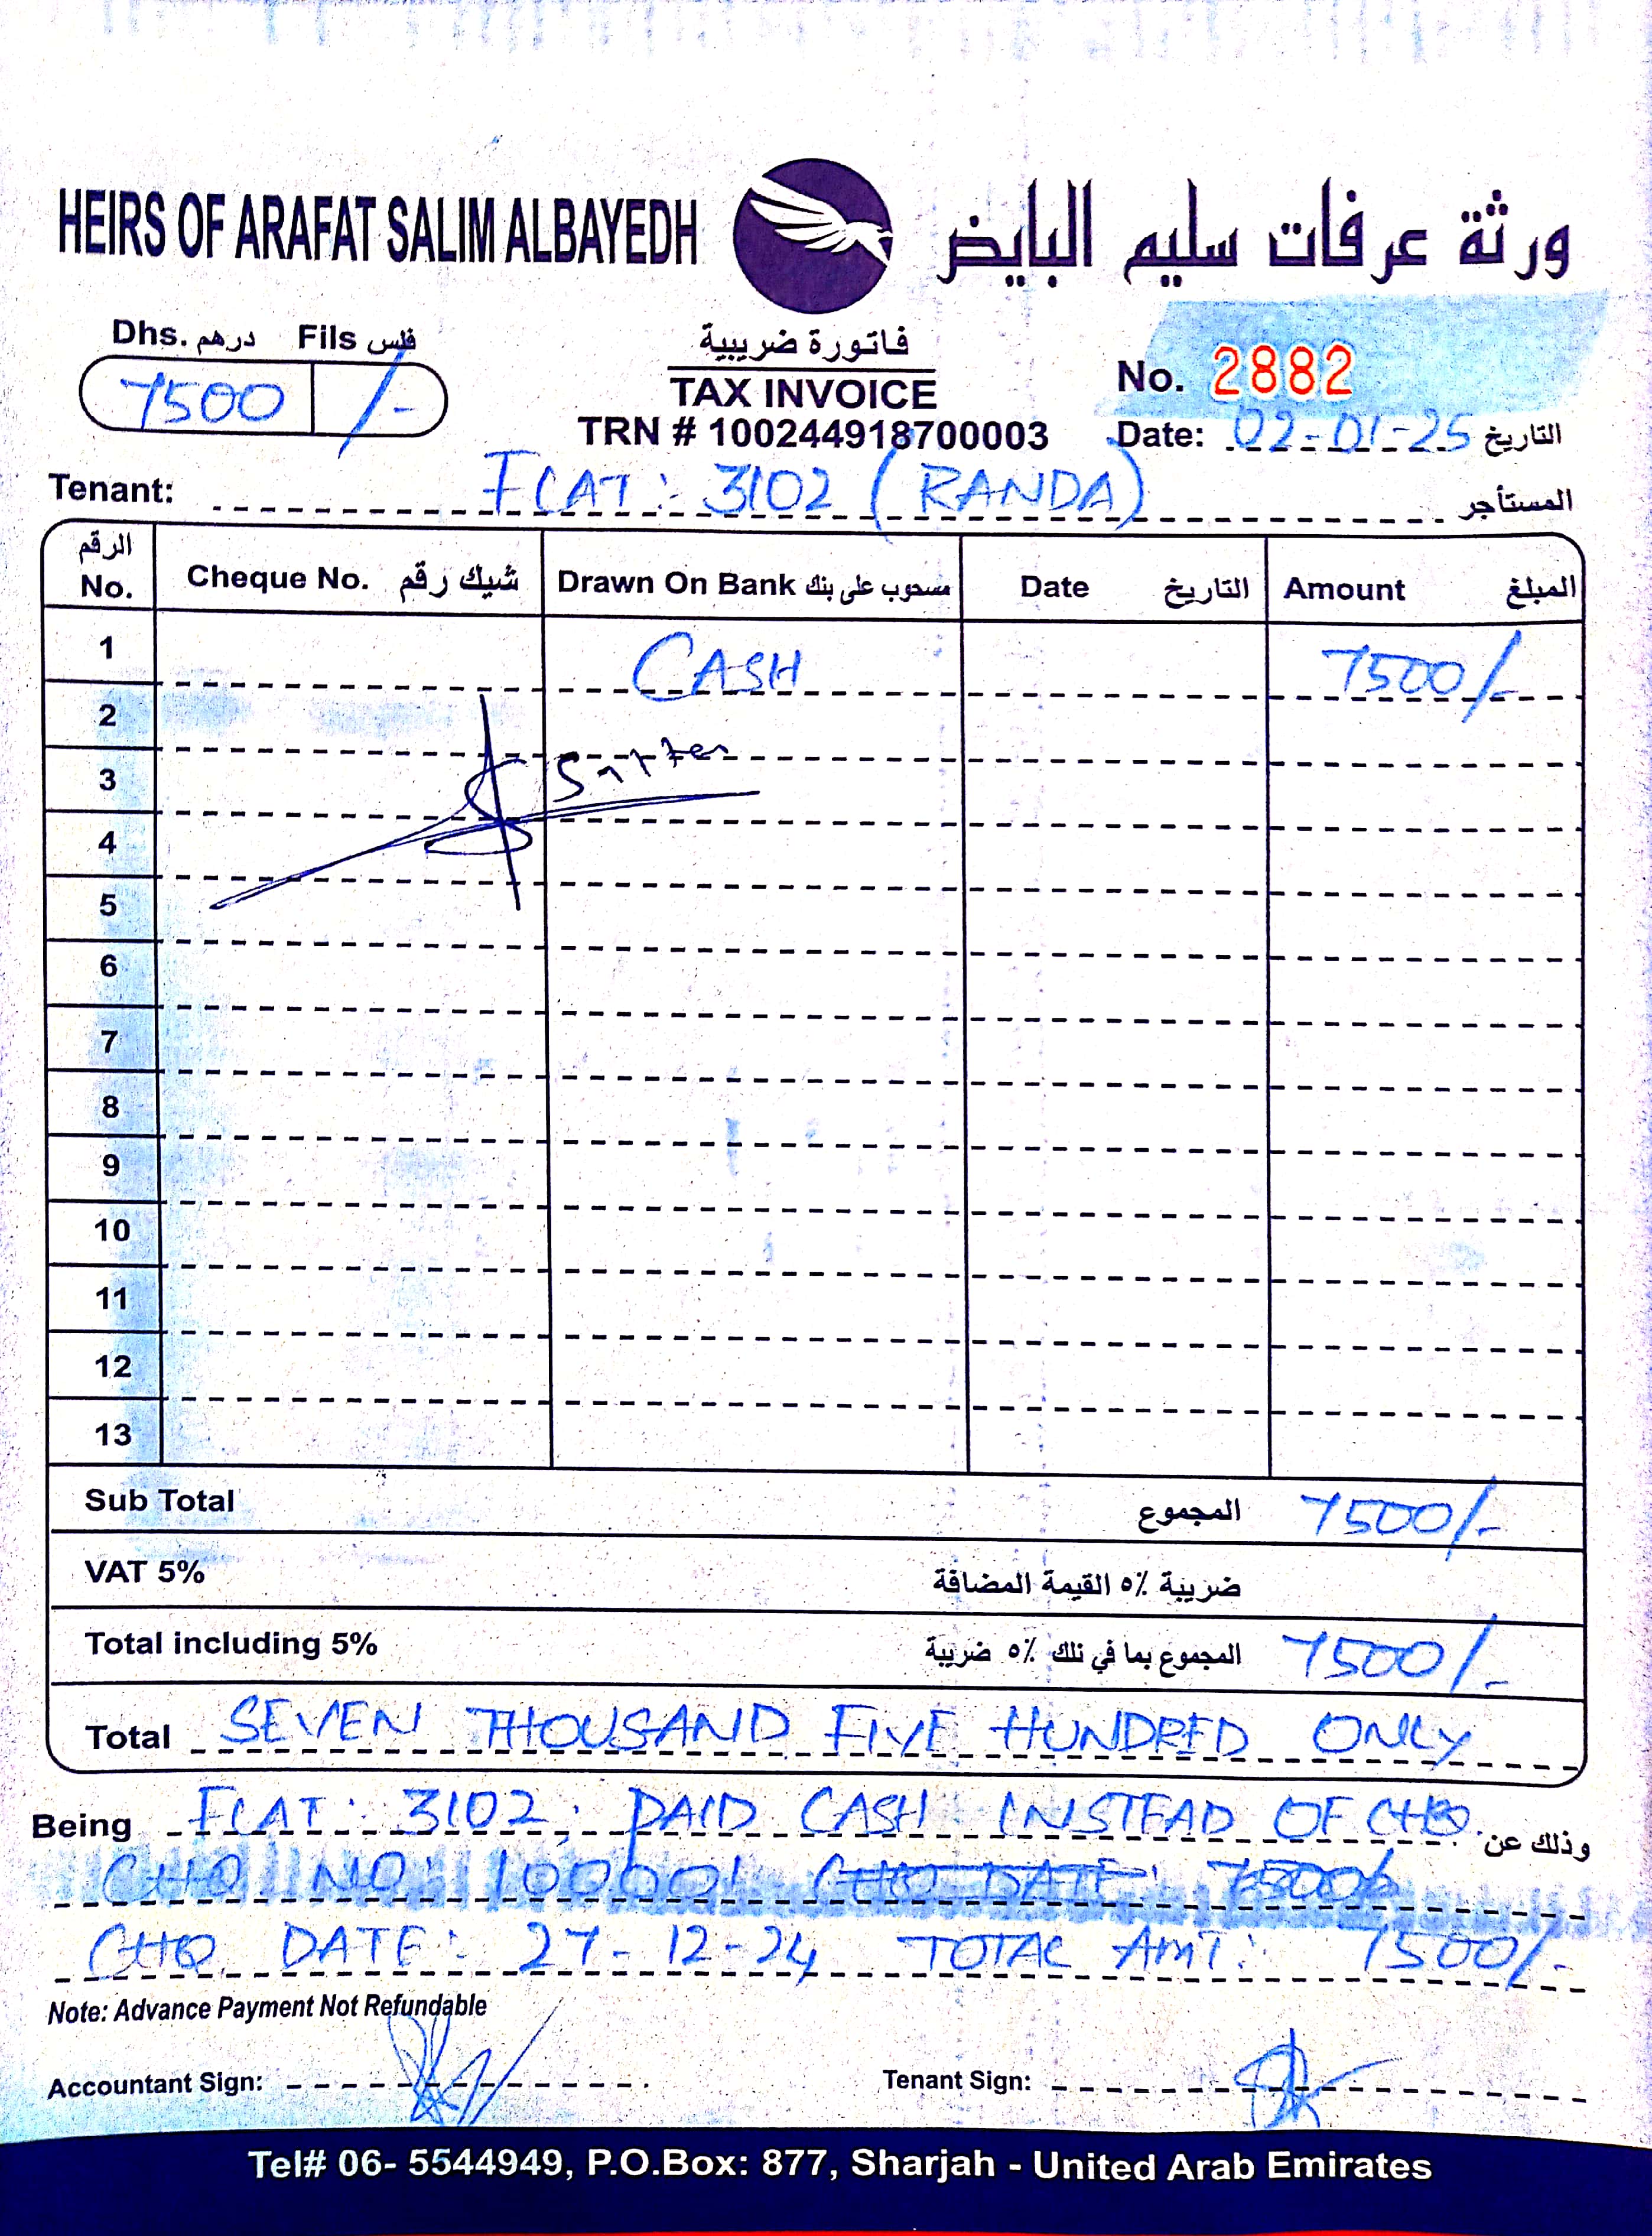 HEIRS OF ARAFAT SALIM ALBAYEDH ورثة عرفات سليم البايض
Dhs. درهم Fils فلس
7500 /-
فاتورة ضريبية
TAX INVOICE
TRN # 100244918700003
No. 2882
Date: 02-01-25 التاريخ
Tenant: FLAT: 3102 (RANDA) المستأجر
الرقم No. Cheque No. شيك رقم Drawn On Bank مسحوب على بنك Date التاريخ Amount المبلغ
1 CASH 7500/-
2
3
4
5
6
7
8
9
10
11
12
13
Sub Total المجموع 7500/-
VAT 5% ضريبة ٥٪ القيمة المضافة
Total including 5% المجموع بما في ذلك ٥٪ ضريبة 7500/-
Total SEVEN THOUSAND FIVE HUNDRED ONLY
Being FLAT: 3102; PAID CASH INSTEAD OF CHQ. وذلك عن
CHQ NO: 100001 CHQ DATE: 7500/-
CHQ DATE: 27-12-24 TOTAL AMT: 7500/-
Note: Advance Payment Not Refundable
Accountant Sign: Tenant Sign:
Tel# 06- 5544949, P.O.Box: 877, Sharjah - United Arab Emirates